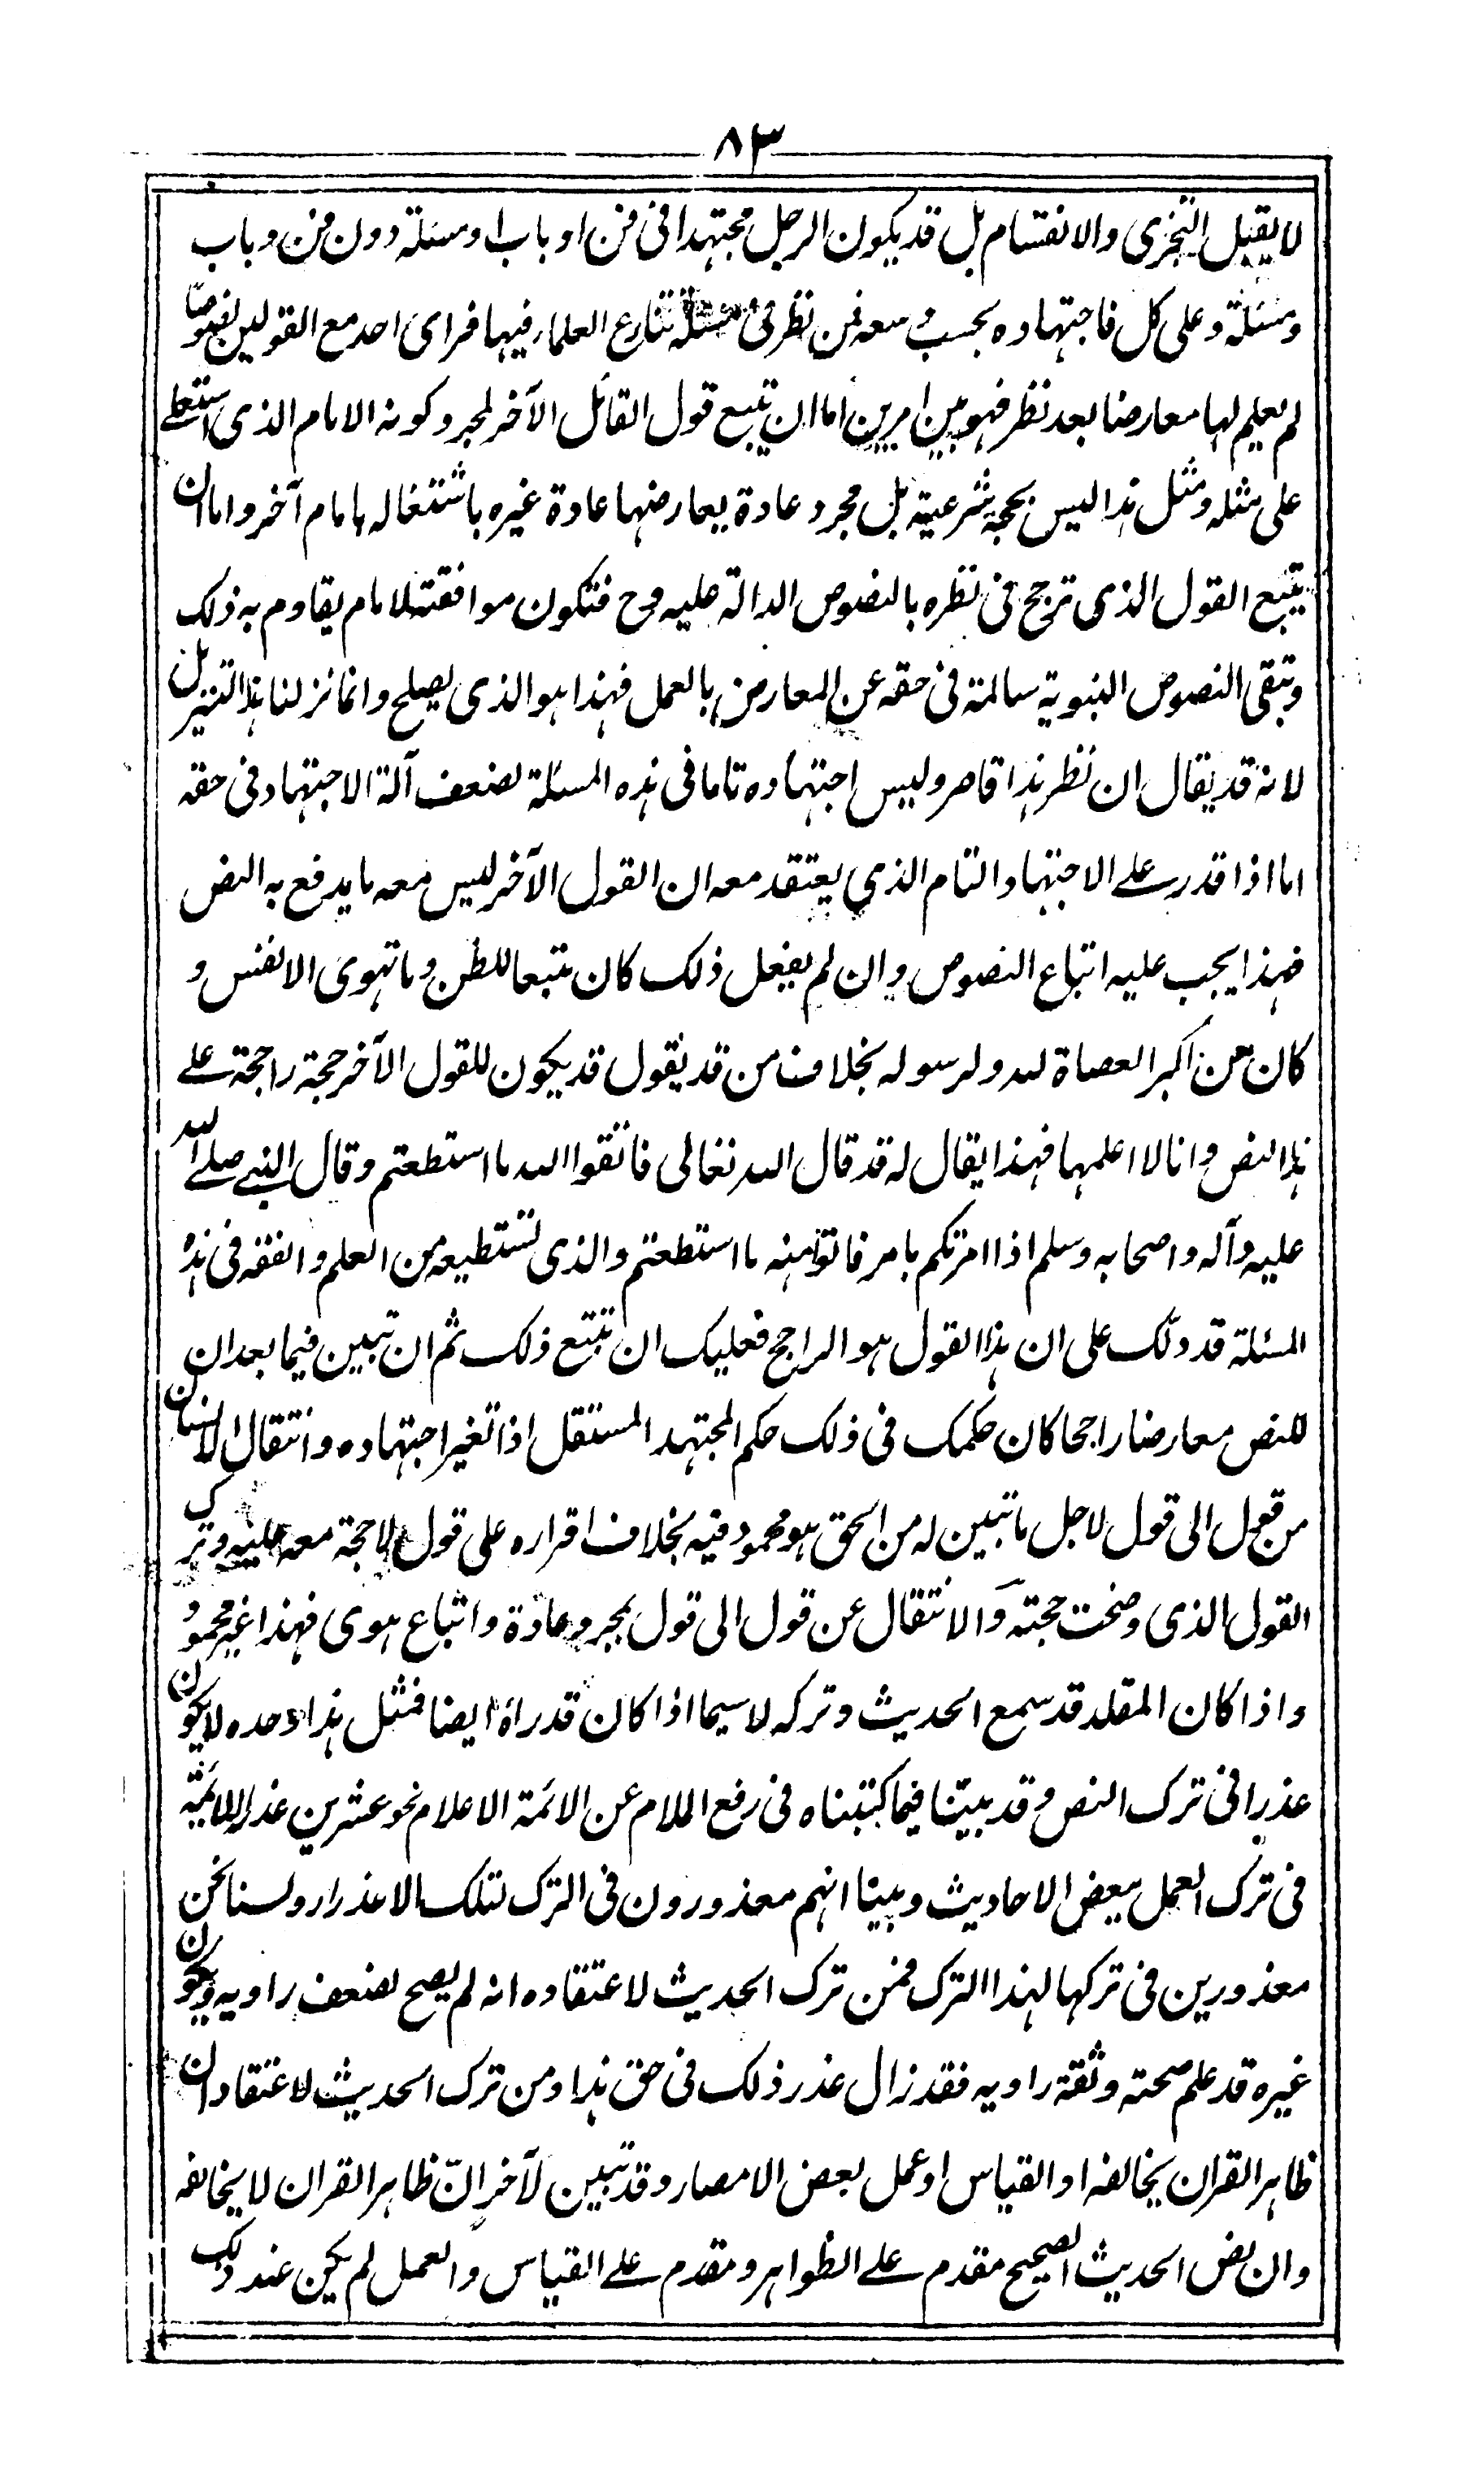 ٨٣
لا يقبل التجزى والانقسام بل قد يكون الرجل مجتهدا فى فن او باب او مسئلة دون فن و باب
ومسئلة وعلى كل فاجتهاده بحسب وسعه فمن نظر فى مسئلة تنازع العلماء فيها فراى احد مع القولين نصوصا
لم يعلم لها معارضا بعد نظر فهو بين امرين اما ان يتبع قول القائل الآخر لمجرد كونه الامام الذى اشتغل
على مثله ومثل هذا ليس بحجة شرعية بل مجرد عادة يعارضها عادة غيره باشتغاله بامام آخر واما ان
يتبع القول الذى ترجح فى نظره بالنصوص الدالة عليه وح فتكون موافقته لامام يقاوم به ذلك
وتبقى النصوص النبوية سالمة فى حقه عن المعارض بالعمل فهذا هو الذى يصلح وانما نزلنا هذا التنزيل
لانه قد يقال ان نظر هذا قاصر وليس اجتهاده تاما فى هذه المسئلة لضعف آلة الاجتهاد فى حقه
اما اذا قدر على الاجتهاد التام الذي يعتقد معه ان القول الآخر ليس معه ما يدفع به النص
فهذا يجب عليه اتباع النصوص وان لم يفعل ذلك كان متبعا للظن وما تهوى الانفس و
كان من اكبر العصاة لله ولرسوله بخلاف من قد يقول قد يكون للقول الآخر حجة راجحة على
هذا النص وانا لا اعلمها فهذا يقال له قد قال الله تعالى فاتقوا الله ما استطعتم وقال النبي صلى الله
عليه وآله واصحابه وسلم اذا امرتكم بامر فاتوا منه ما استطعتم والذى تستطيعه من العلم والفقه فى هذه
المسئلة قد دلك على ان هذا القول هو الراجح فعليك ان تتبع ذلك ثم ان تبين فيما بعد ان
للنص معارضا راجحا كان حكمك فى ذلك حكم المجتهد المستقل اذا تغير اجتهاده وانتقال الانسان
من قول الى قول لاجل ما تبين له من الحق هو محمود فيه بخلاف اقراره على قول لا حجة معه عليه وترك
القول الذى وضحت حجته والانتقال عن قول الى قول بمجرد عادة واتباع هوى فهذا غير محمود
واذا كان المقلد قد سمع الحديث وتركه لا سيما اذا كان قد راه ايضا فمثل هذا وحده لا يكون
عذرا فى ترك النص وقد بينّا فيما كتبناه فى رفع الملام عن الائمة الاعلام نحو عشرين عذرا للائمة
فى ترك العمل ببعض الاحاديث وبينا انهم معذورون فى الترك لتلك الاعذار ولسنا نحن
معذورين فى تركها لهذا الترك فمن ترك الحديث لاعتقاده انه لم يصح لضعف راويه ويكون
غيره قد علم صحته وثقة راويه فقد زال عذر ذلك فى حق هذا ومن ترك الحديث لاعتقاد ان
ظاهر القران يخالفه او القياس او عمل بعض الامصار وقد تبين لآخر انّ ظاهر القران لا يخالفه
وان نص الحديث الصحيح مقدم على الظواهر ومقدم على القياس والعمل لم يكن عند ذلك